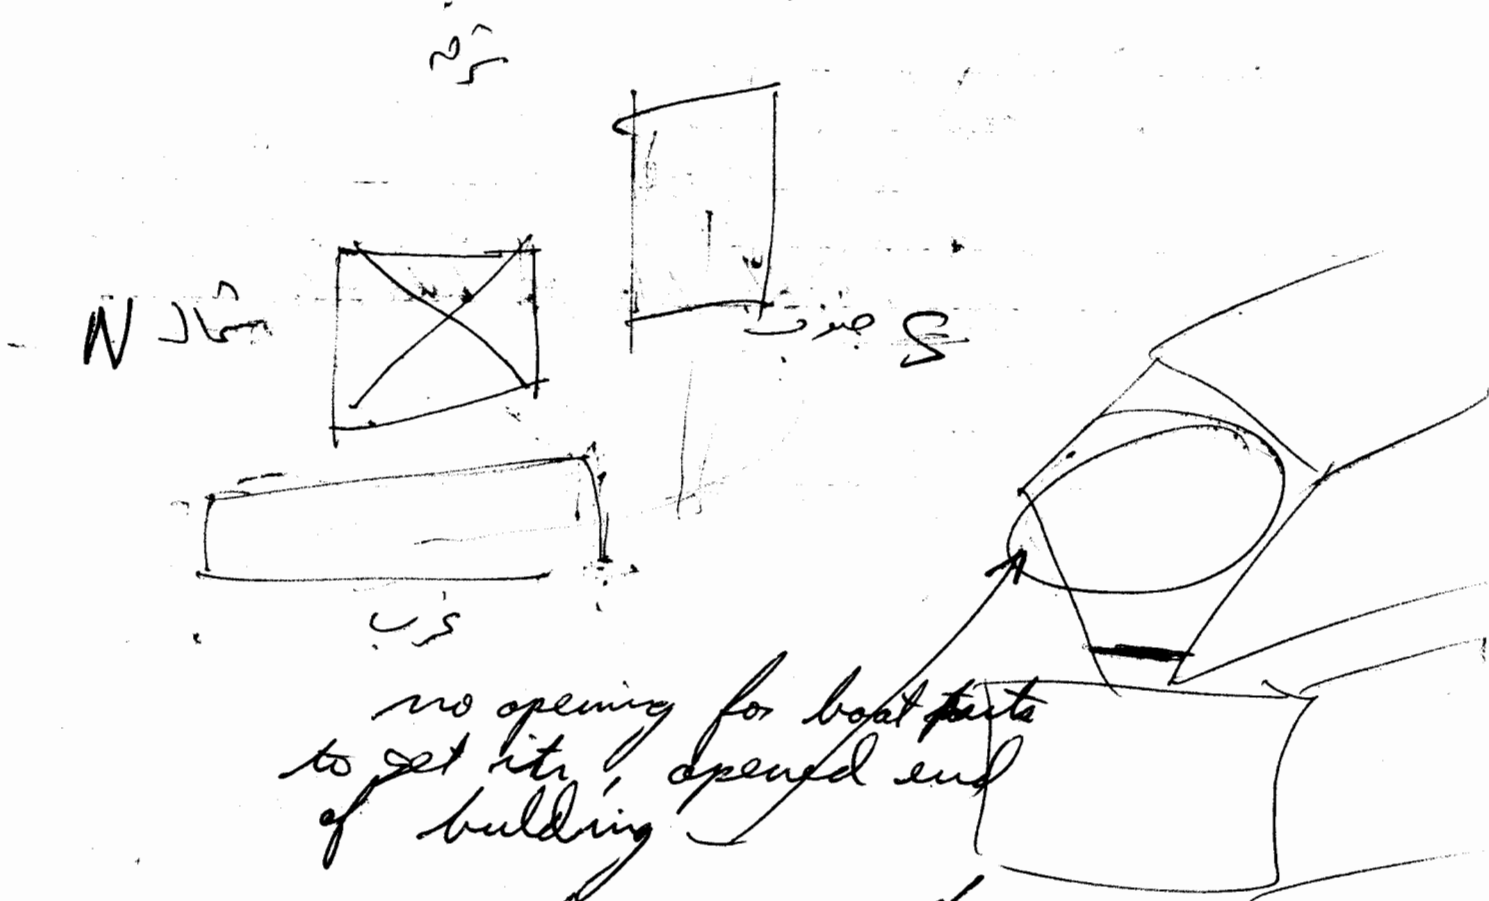 شرق
N شمال
جنوب S
غرب
no opening for boat parts
to get in, opened end
of building